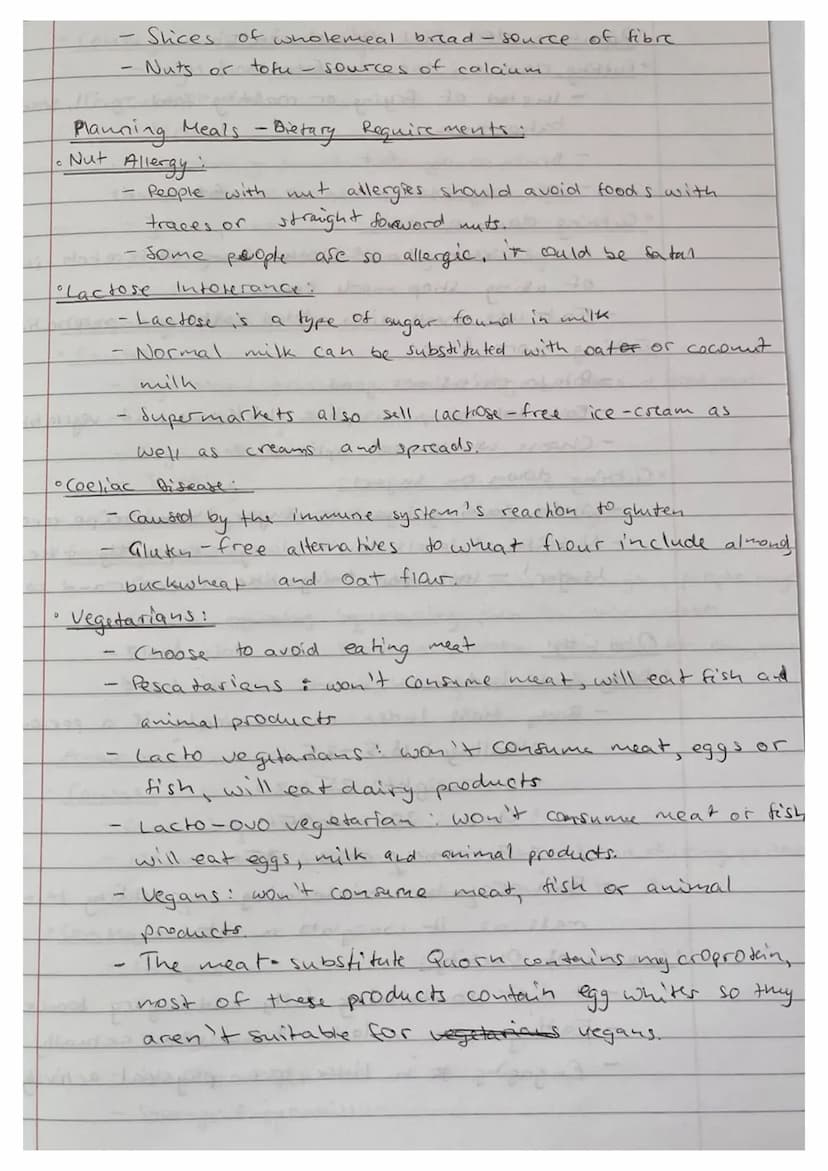 - Slices of wholemeal bread - source of fibre
- Nuts or tofu - sources of calcium
Planning Meals - Dietary Requirements:
• Nut Allergy:
- People with nut allergies should avoid foods with
traces or straight foreword nuts.
- Some people are so allergic, it could be fatal
• Lactose Intolerance:
- Lactose is a type of sugar found in milk
- Normal milk can be substituted with oat or coconut
milk
- Supermarkets also sell lactose-free ice-cream as
well as creams and spreads.
• Coeliac Disease:
- Caused by the immune system's reaction to gluten
- Gluten-free alternatives to wheat flour include almond,
buckwheat and oat flour.
• Vegetarians:
- Choose to avoid eating meat
- Pescatarians: won't consume meat, will eat fish and
animal products
- Lacto vegetarians: won't consume meat, eggs or
fish, will eat dairy products
- Lacto-ovo vegetarian: won't consume meat or fish
will eat eggs, milk and animal products.
- Vegans: won't consume meat, fish or animal
products.
- The meat-substitute Quorn contains mycroprotein,
most of these products contain egg whites so they
aren't suitable for vegetarians vegans.